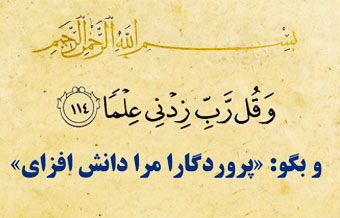 بِسْمِ اللَّهِ الرَّحْمَٰنِ الرَّحِيمِ
وَقُل رَّبِّ زِدْنِي عِلْمًا ﴿١١٤﴾
و بگو: «پروردگارا مرا دانش افزای»